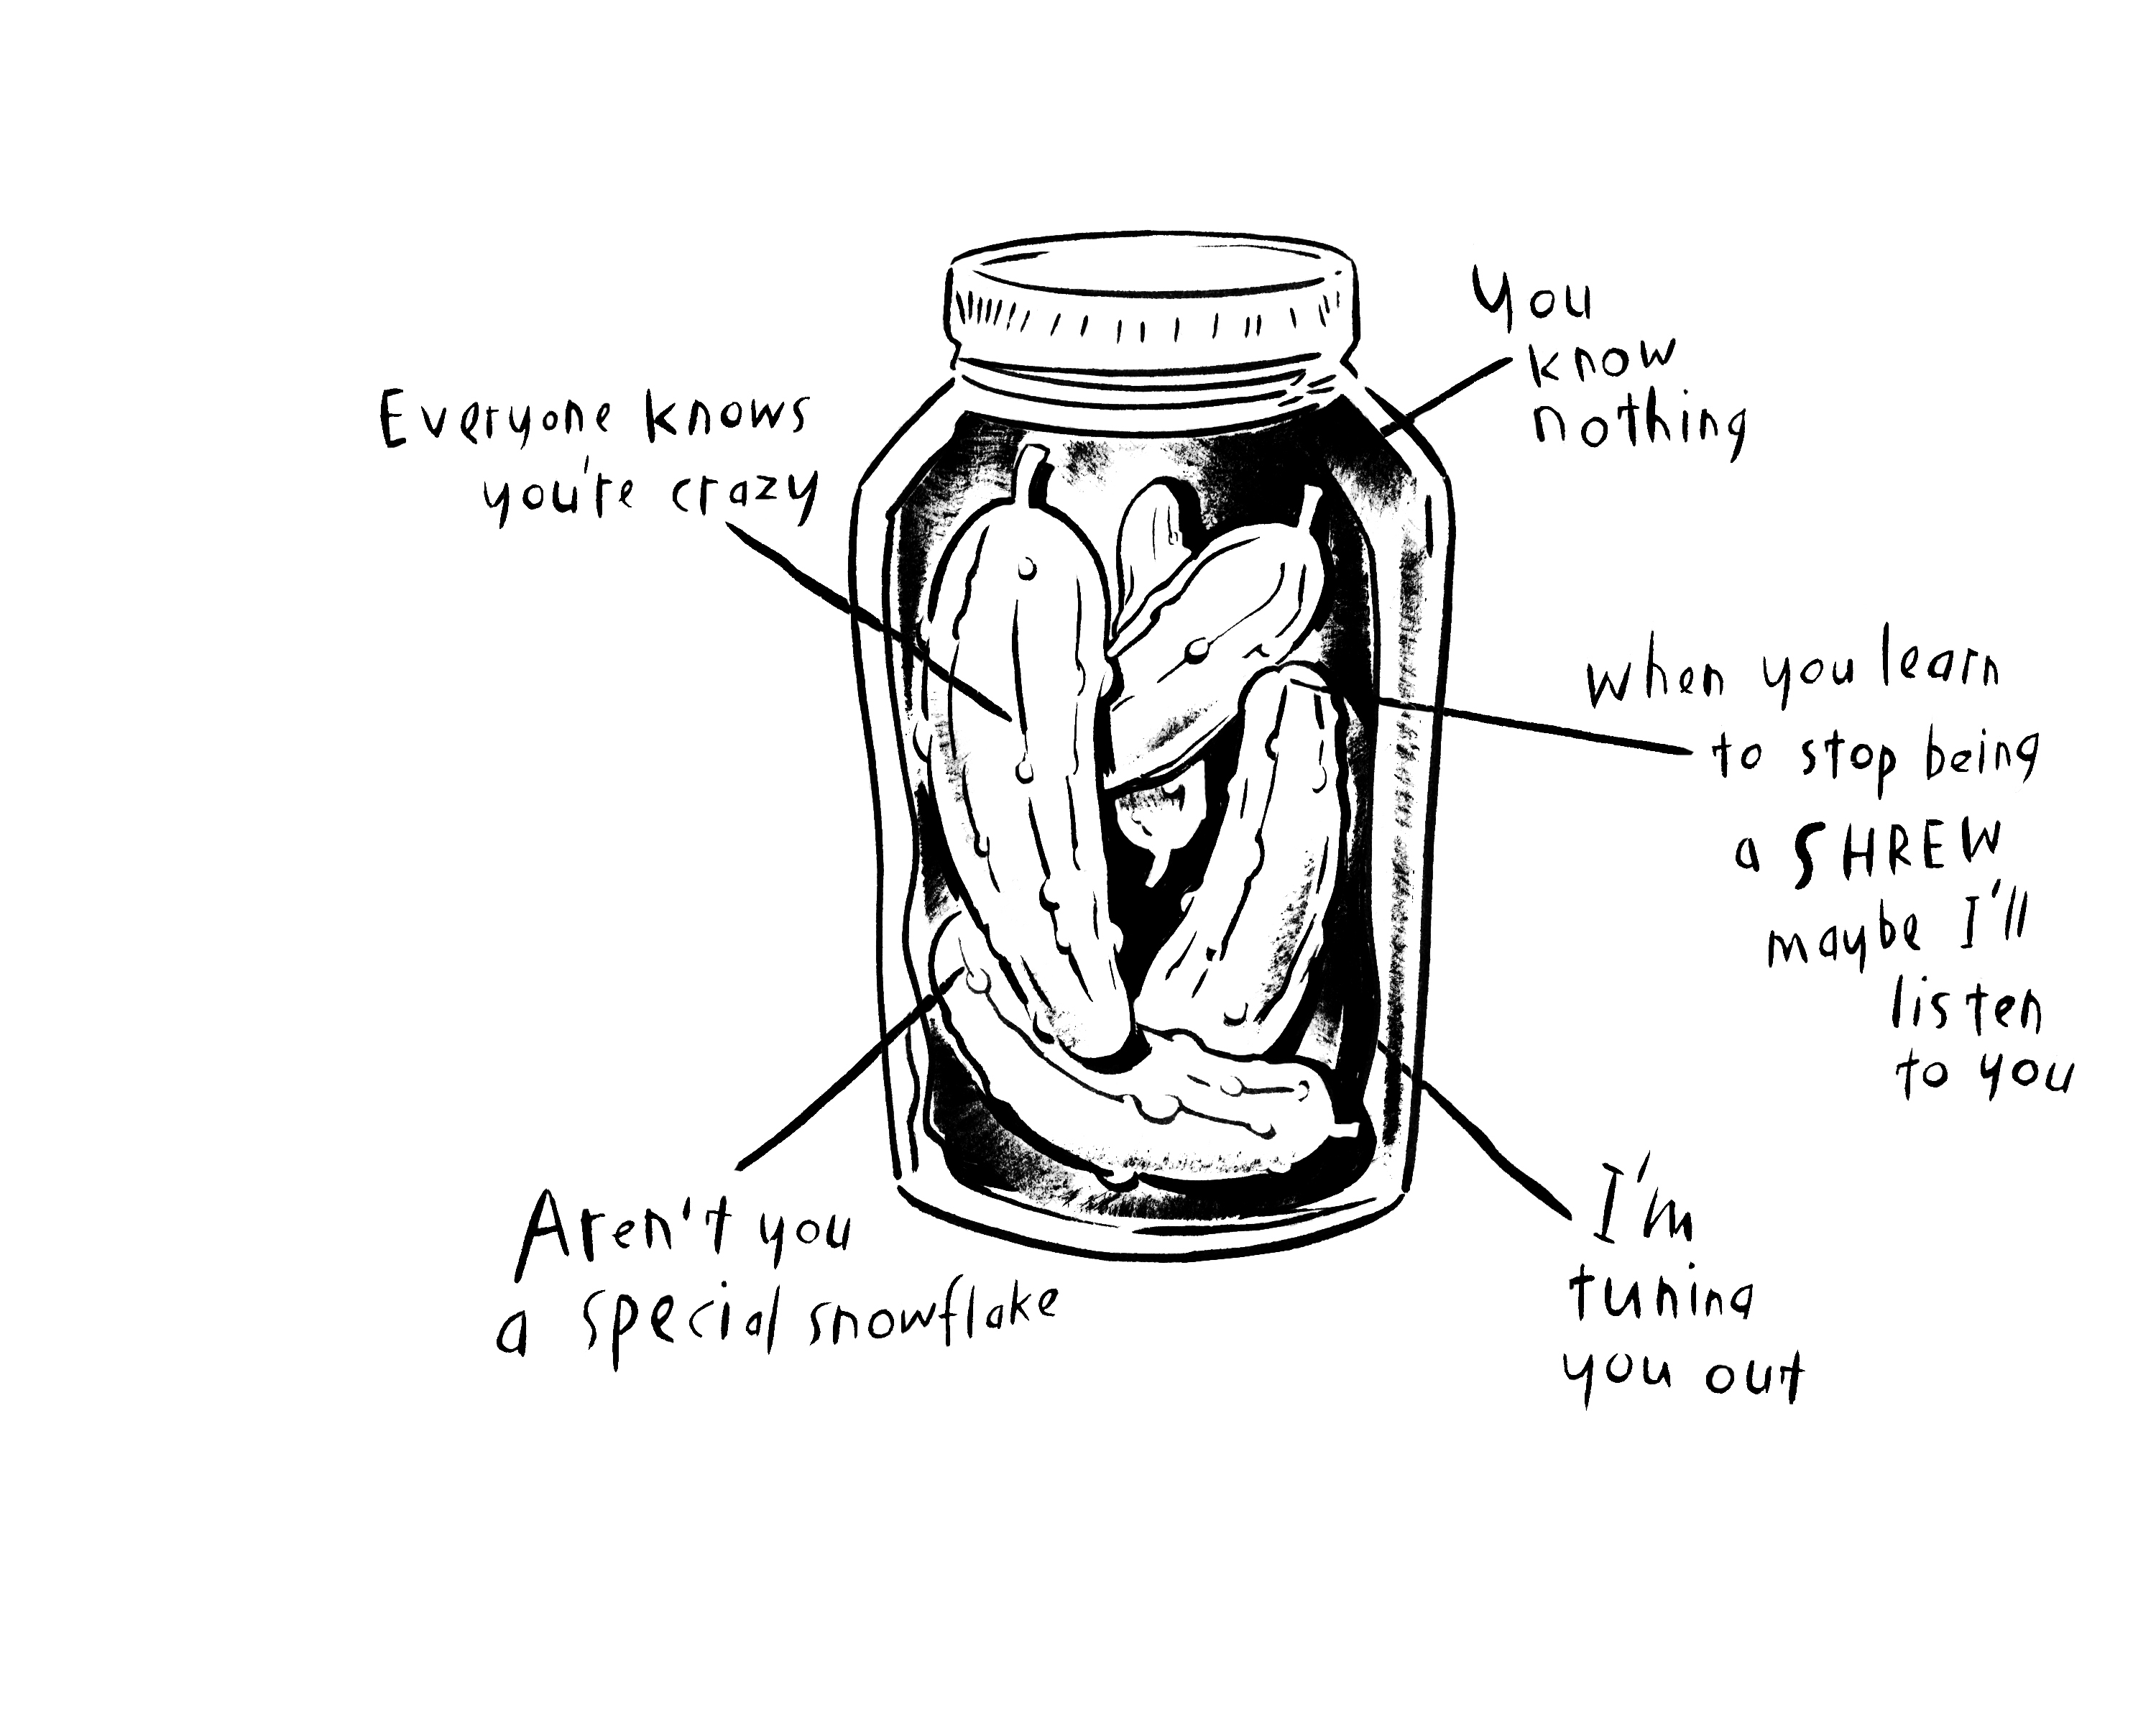 Everyone knows
you're crazy
You
know
nothing
when you learn
to stop being
a SHREW
maybe I'll
listen
to you
Aren't you
a special snowflake
I'm
tuning
you out